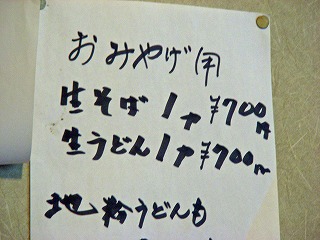 おみやげ用
生そば 1ヶ ¥700円
生うどん1ヶ ¥700円
地粉うどんも